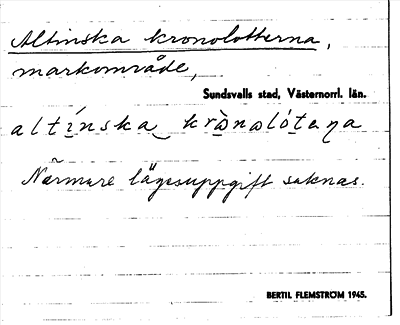 Altinska kronolotterna,
markområde,
Sundsvalls stad, Västernorrl. län.
altínska krònolótəṇa
Närmare lägesuppgift saknas.
BERTIL FLEMSTRÖM 1945.